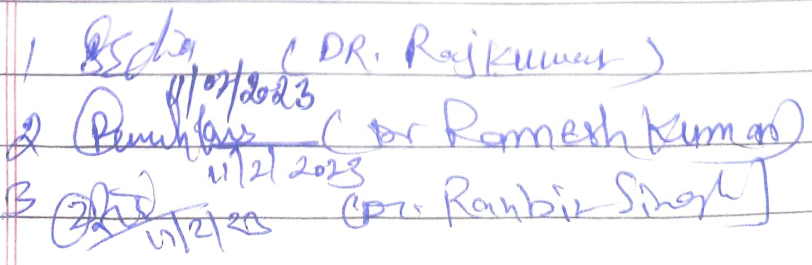 1 (DR. Rajkumar)
11/02/2023
2 (Dr Ramesh Kumar)
11/2/2023
3 (Dr. Ranbir Singh]
11/2/23